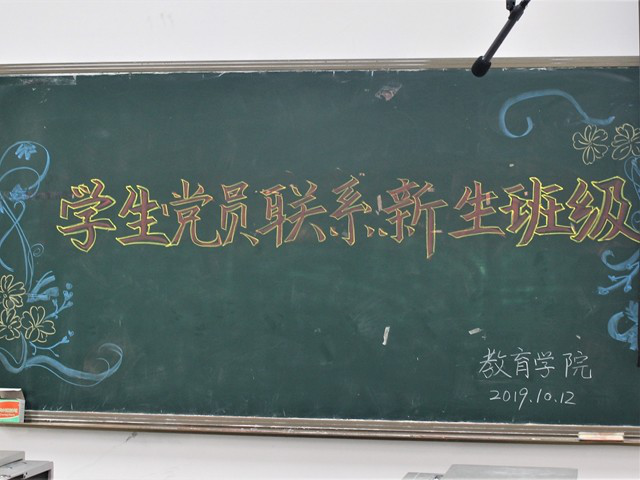 学生党员联系新生班级
教育学院
2019.10.12